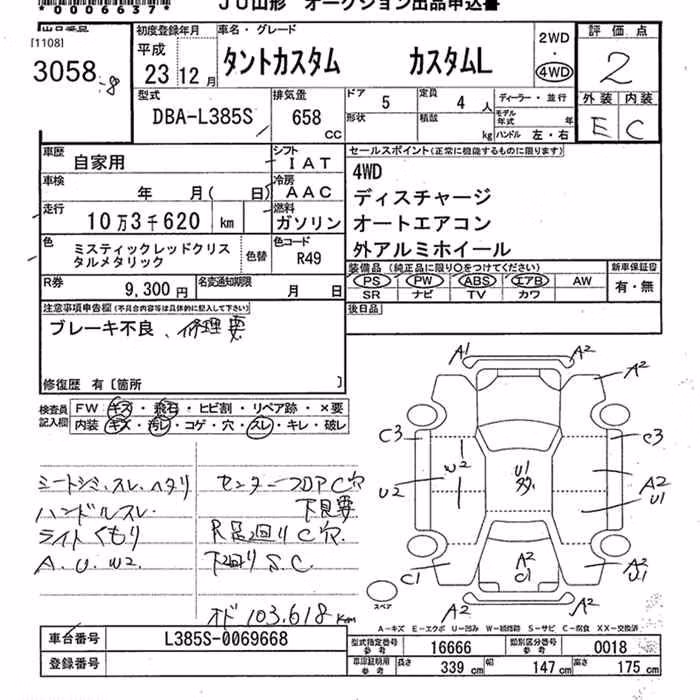 *0006637*
JU山形 オークション出品申込書
出品番号
[1108]
3058
-8
初度登録年月
平成
23年12月
車名・グレード
タントカスタム カスタムL
2WD
・
4WD
評価点
2
外装 内装
E C
型式
DBA-L385S
排気量
658
cc
ドア 5
形状
定員 4 人
積載 kg
ディーラー・並行
モデル年式 年
ハンドル 左・右
車歴
自家用
シフト
IAT
車検
年 月( 日)
冷房
AAC
走行
10万3千620 km
燃料
ガソリン
色
ミスティックレッドクリス
タルメタリック
色替
色コード
R49
R券
9,300 円
名変通知期限
月 日
セールスポイント(正常に機能するものに限ります)
4WD
ディスチャージ
オートエアコン
外アルミホイール
装備品 (純正品に限り○をつけてください)
PS PW ABS エアB AW
SR ナビ TV カワ
新車保証書
有・無
後日品
注意事項申告欄(不具合内容等は具体的に記入して下さい)
ブレーキ不良、修理要
修復歴 有〔箇所 〕
検査員
記入欄
FW キズ・飛石・ヒビ割・リペア跡・×要
内装 キズ・汚レ・コゲ・穴・スレ・キレ・破レ
シートシミ、スレ、ヘタリ
ハンドルスレ
ライトくもり
A.U.W2.
センターフロアC穴
下見要
R足回りC穴
下回りS.C
オド 103,618km
A1 A2
A2
C3 C3
W2
U2
U1
A2
U1
A2
C1
C1
A2
U1
A2 A2
スペア
A-キズ E-エクボ U-凹み W-補修跡 S-サビ C-腐食 XX-交換済
車台番号
L385S-0069668
登録番号
型式指定番号
参考
16666
類別区分番号
参考
0018
車庫証明用
参考
長さ 339 cm
幅 147 cm
高さ 175 cm